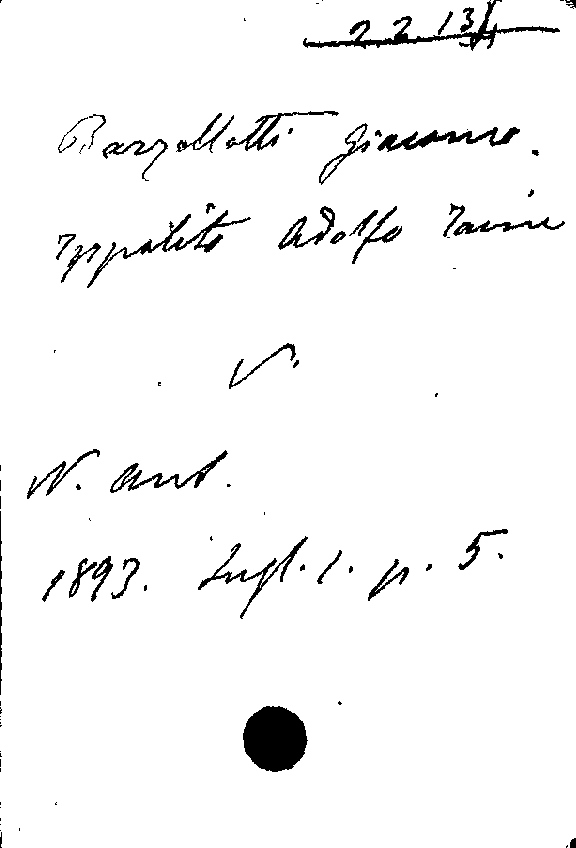 Barzellotti Giacomo.
Ippolito Adolfo Taine
V.
N. Ant.
1893. Lugl. 1. p. 5.